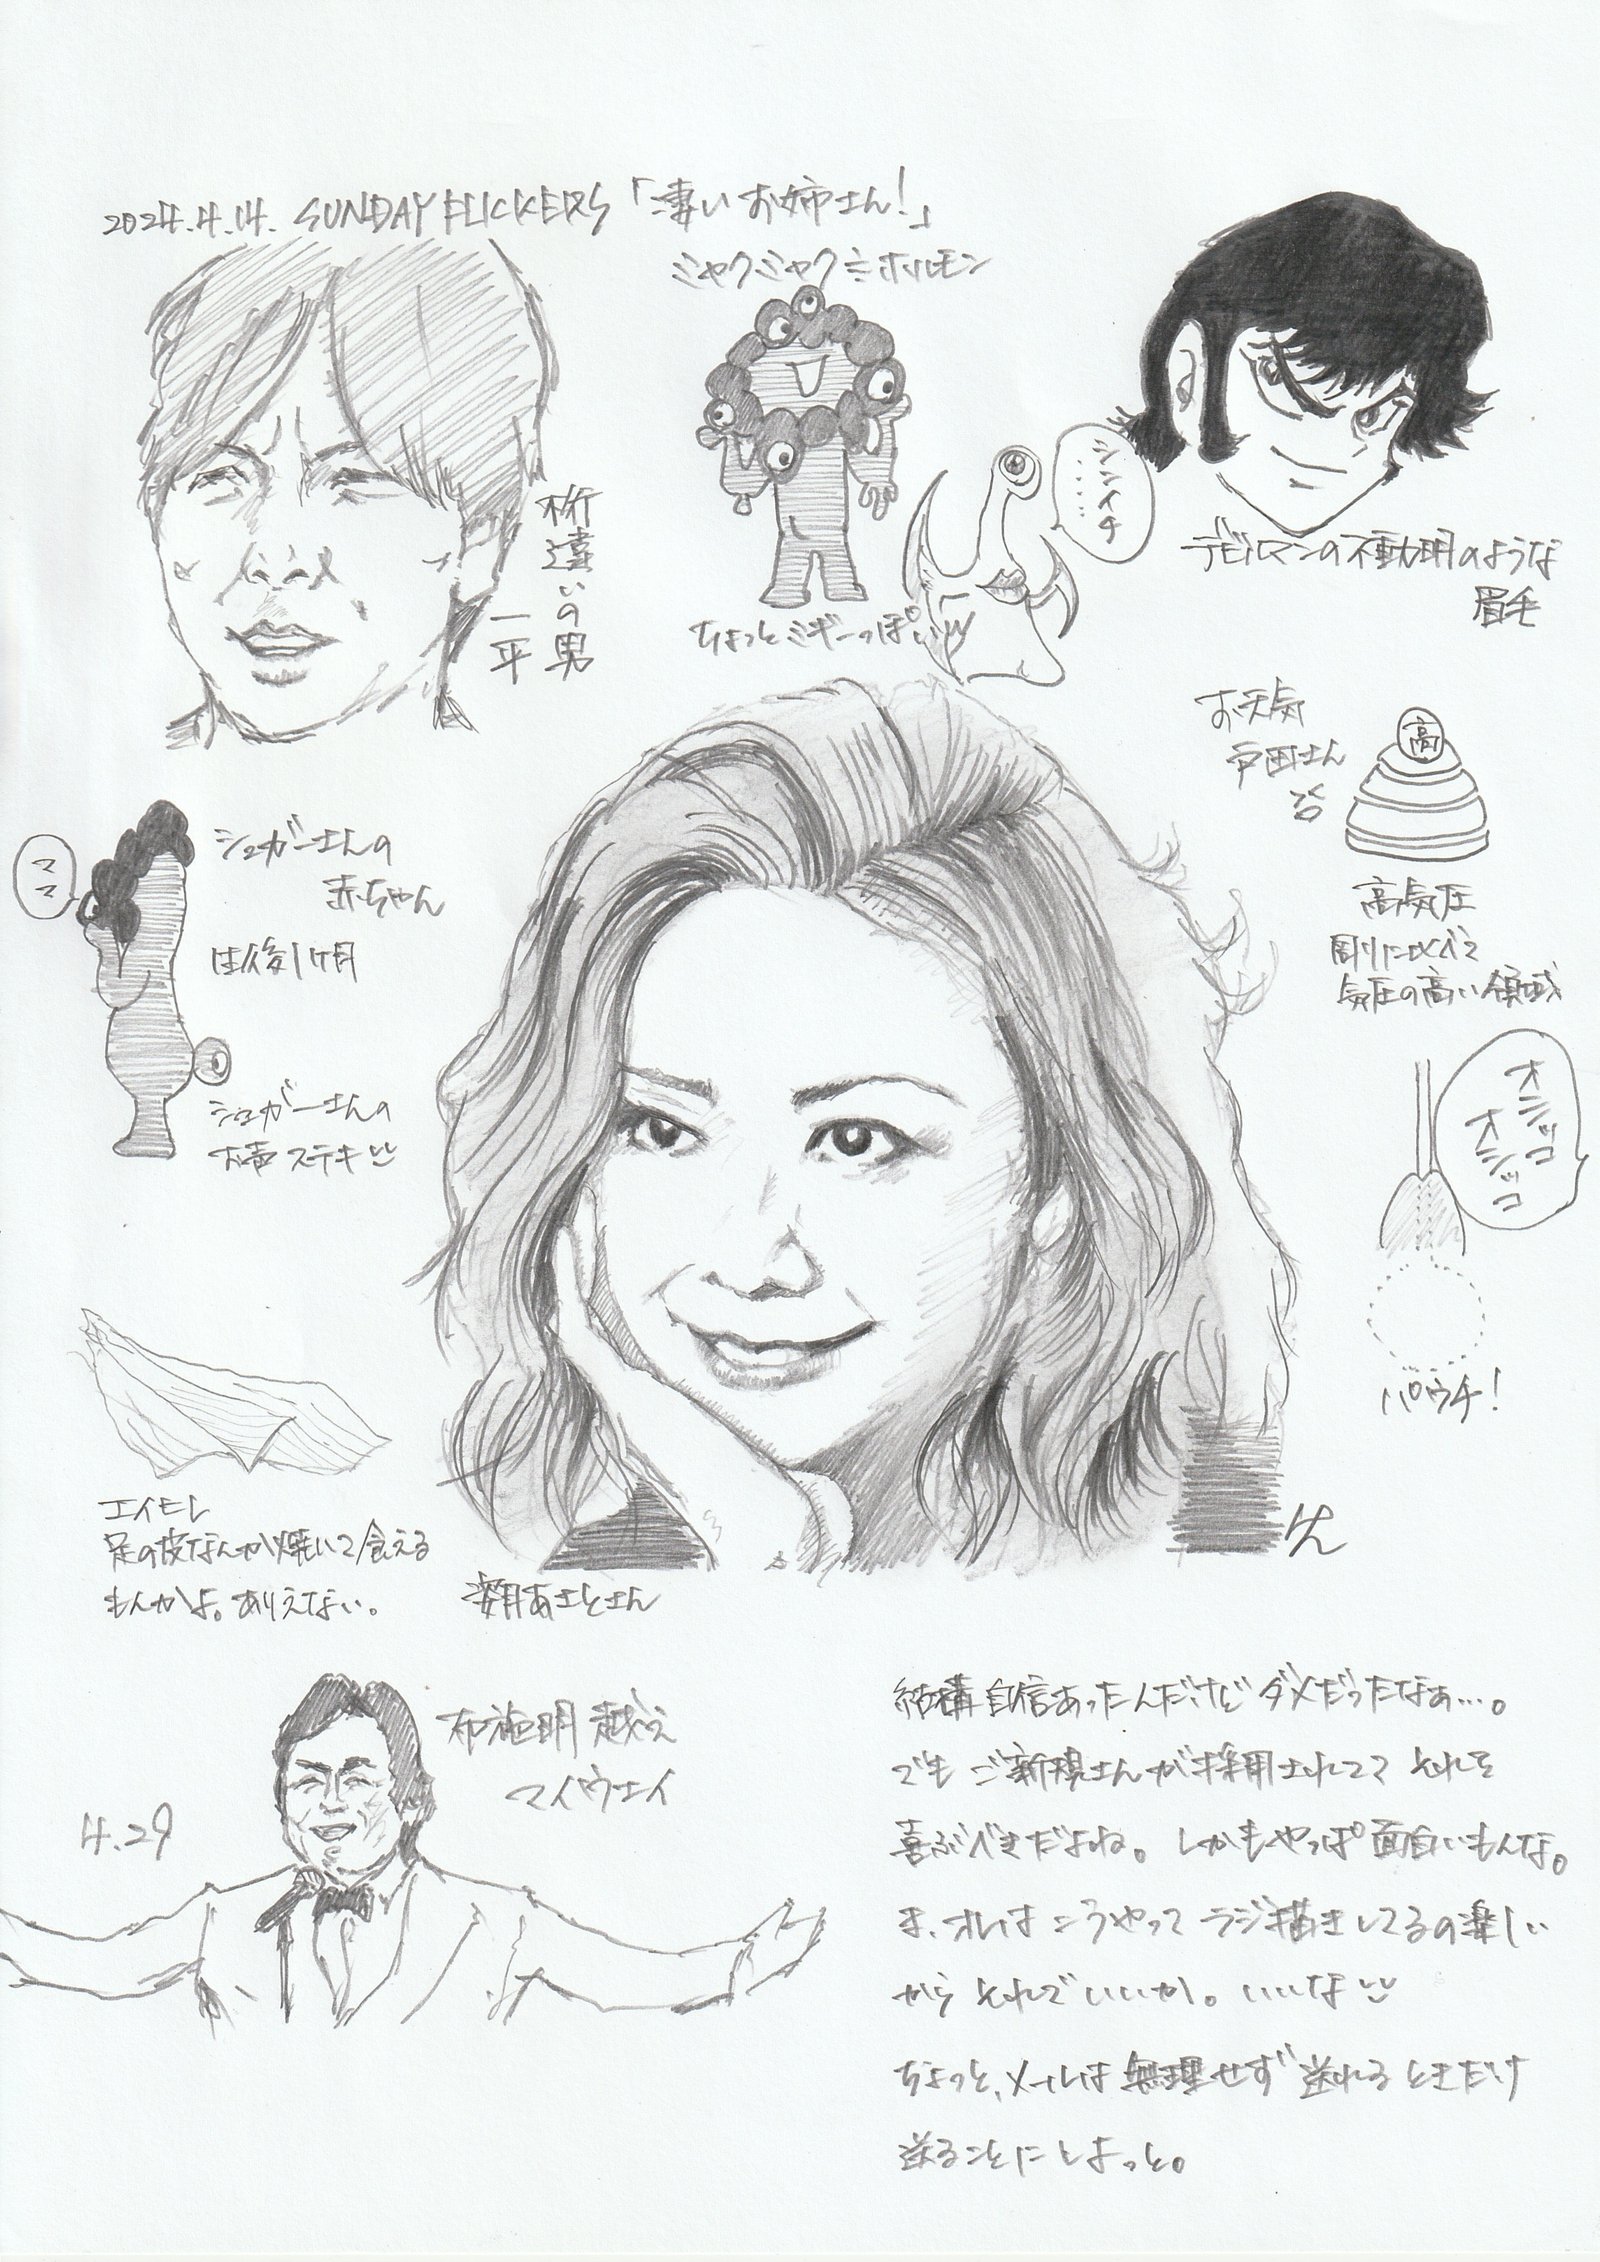 2024.4.14. SUNDAY FLICKERS「凄いお姉さん!」
ミャクミャク≒ホルモン
シンイチ
桁違いの男
一平
ちょっとミギーっぽい
デビルマンの不動明のような
眉毛
お天気
戸田さん
高
高気圧
周りに比べて
気圧の高い領域
ママ
シュガーさんの
赤ちゃん
生後1ヶ月
シュガーさんの
お声ステキ
オシッコ
オシッコ
パウチ!
エイヒレ
足の皮なんか焼いて食える
もんかよ。ありえない。
けん
あさとさん
布施明越え
マイウェイ
4.29
結構自信あったんだけどダメだったなぁ…。
でもご新規さんが採用されてて それを
喜ぶべきだよね。しかもやっぱ面白いもんな。
ま、オレはこうやってラジ描きしてるの楽しい
からそれでいいか。いいな
ちょっと、メールは無理せず送れるときだけ
送ることにしよっと。